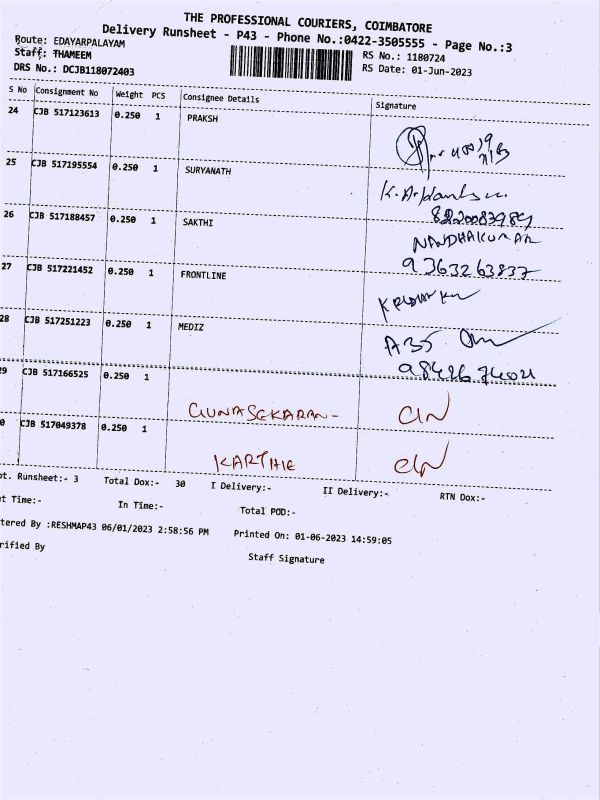 THE PROFESSIONAL COURIERS, COIMBATORE
Delivery Runsheet - P43 - Phone No.:0422-3505555 - Page No.:3
Route: EDAYARPALAYAM
RS No.: 1180724
Staff: THAMEEM
RS Date: 01-Jun-2023
DRS No.: DCJB118072403
S No Consignment No Weight PCS Consignee Details Signature
24 CJB 517123613 0.250 1 PRAKSH
25 CJB 517195554 0.250 1 SURYANATH
8220083989
26 CJB 517188457 0.250 1 SAKTHI
NANDHAKUMAR
9363263837
27 CJB 517221452 0.250 1 FRONTLINE
28 CJB 517251223 0.250 1 MEDIZ
A35
9842674021
9 CJB 517166525 0.250 1 GUNASEKARAN-
0 CJB 517049378 0.250 1 KARTHIE
ot. Runsheet:- 3 Total Dox:- 30 I Delivery:- II Delivery:- RTN Dox:-
t Time:- In Time:- Total POD:-
tered By :RESHMAP43 06/01/2023 2:58:56 PM Printed On: 01-06-2023 14:59:05
rified By Staff Signature